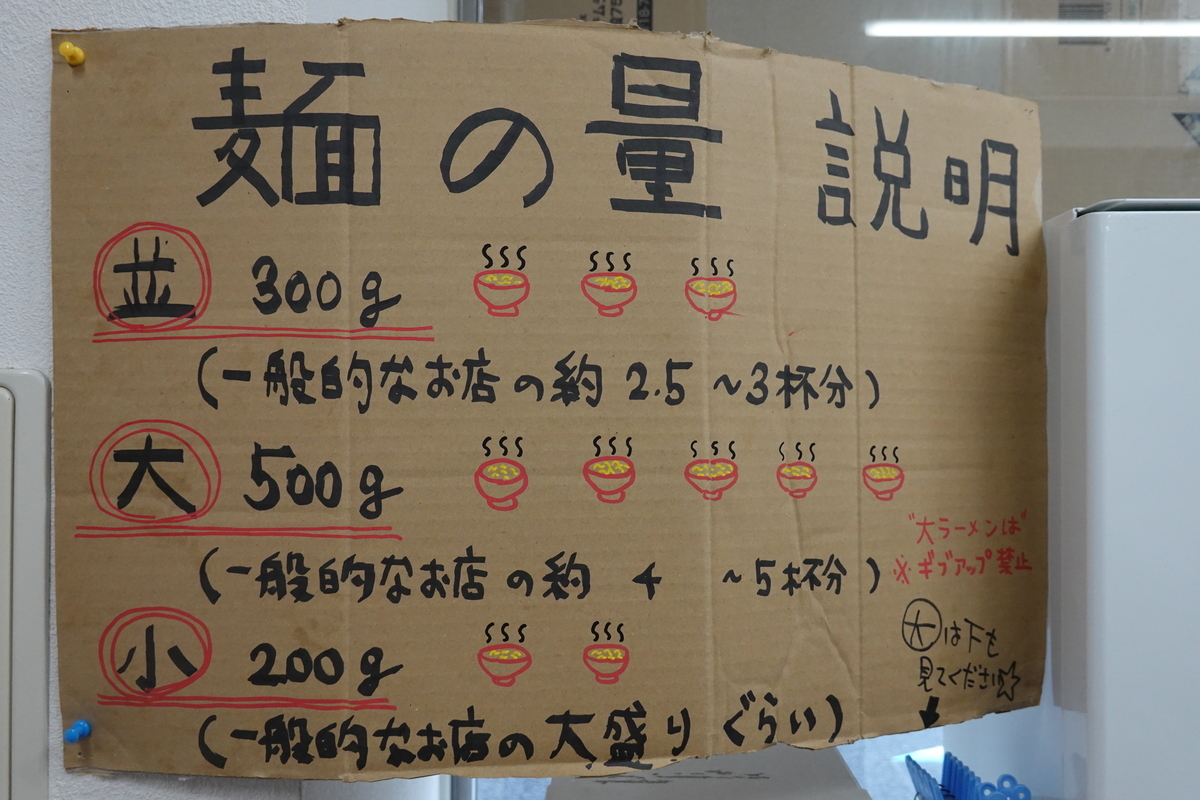 麺の量 説明
並 300g
(一般的なお店の約 2.5 ~3杯分)
大 500g
(一般的なお店の約 4 ~5杯分)
"大ラーメンは"
※ギブアップ禁止
大は下も
見てください☆
小 200g
(一般的なお店の大盛りぐらい)